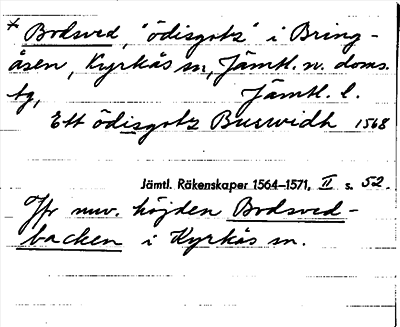 * Bodsved, "ödisgots" i Bring-
åsen, Kyrkås sn, Jämtl. n. doms.
tg, Jämtl. l.
Ett ödisgotz Buswidh 1568
Jämtl. Räkenskaper 1564–1571, II s. 52.
Jfr nuv. höjden Bodsved-
backen i Kyrkås sn.